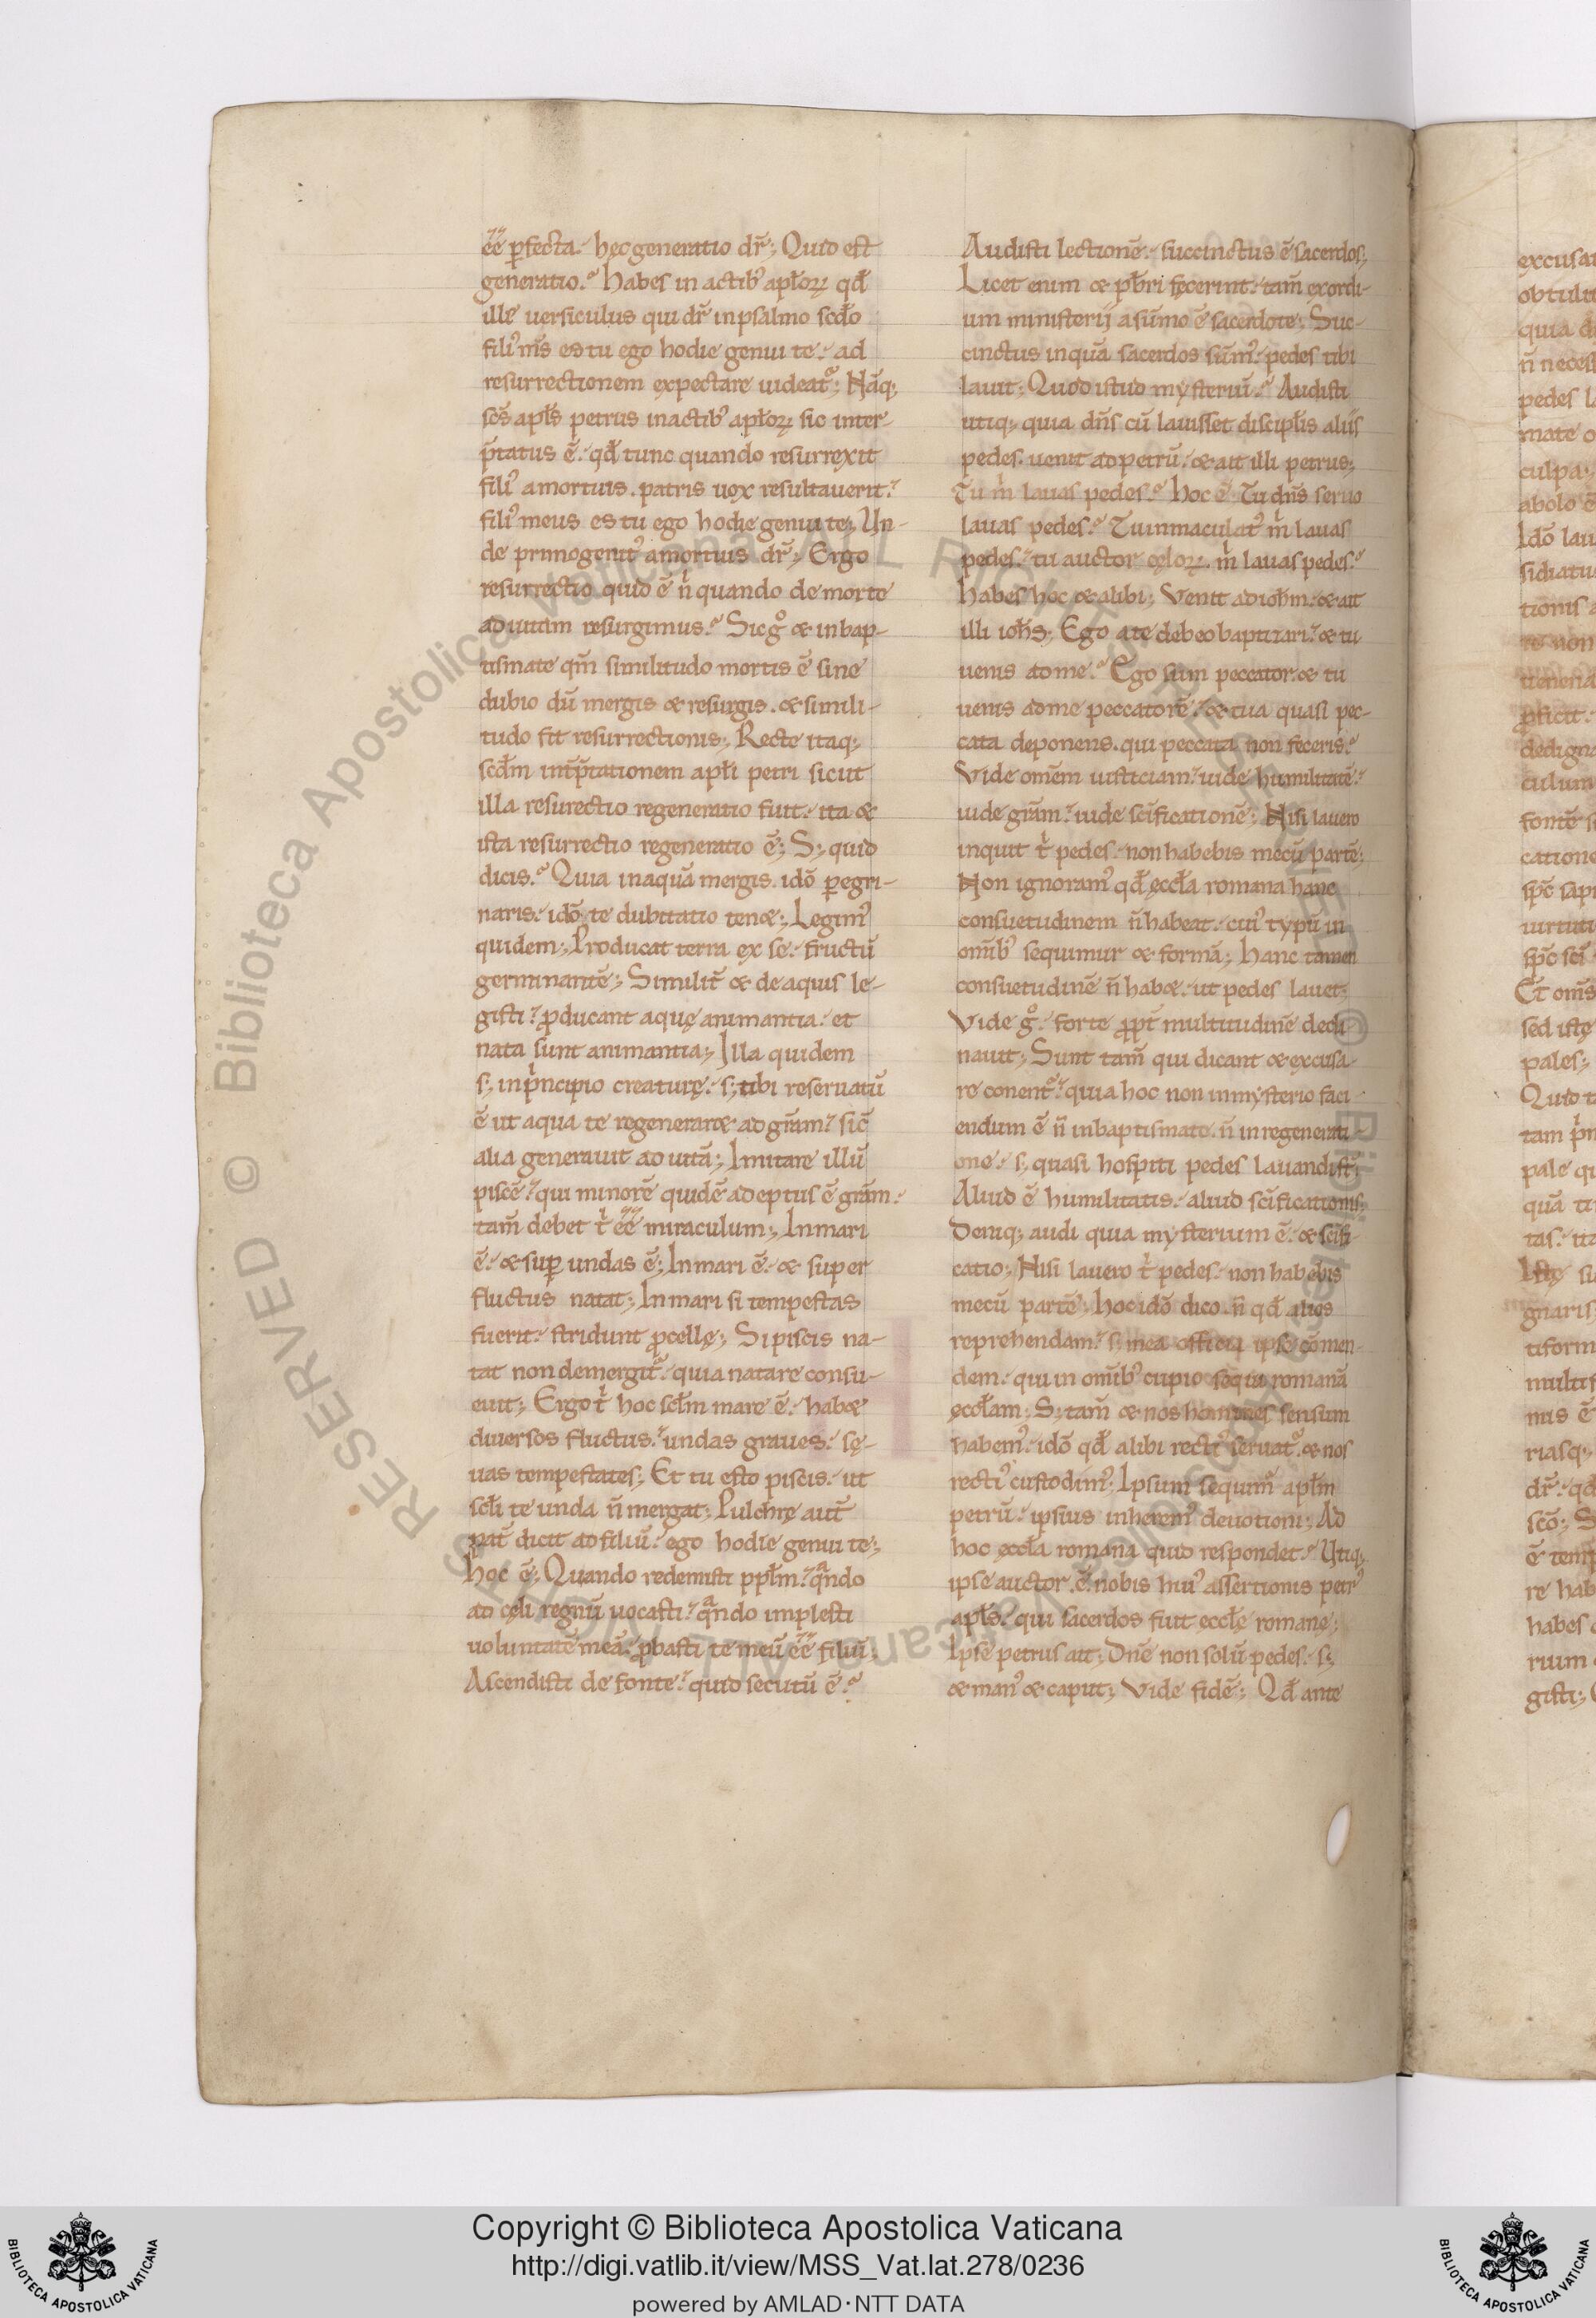 ēē ꝑfecta. hęc generatio dr̄; Quid est
generatio? Habes in actib' apłoꝝ qđ
ille uersiculus qui dr̄ in psalmo scđo
fili' m̄s es tu ego hodie genui te. ad
resurrectionem expectare uideat̄; Nāq;
scs̄ apłs petrus in actib' apłoꝝ sic inter-
p̄tatus ē. qđ tunc quando resurrexit
fili' a mortuis. patris uox resultauerit.
fili' meus es tu ego hodie genui te; Un-
de primogenit' a mortuis dr̄; Ergo
resurrectio quid ē n̄ quando de morte
ad uitam resurgimus? Sic gͦ & in bap-
tismate qm̄ similitudo mortis ē sine
dubio dū mergis & resurgis. & simili-
tudo fit resurrectionis; Recte itaq;
scđm intp̄tationem apłi petri sicut
illa resurectio regeneratio fuit. ita &
ista resurrectio regeneratio ē; S; quid
dicis? Quia in aquā mergis. idō ꝑegri-
naris. idō te dubitatio ten&; Legim'
quidem; Producat terra ex se. fructū
germinantē; Similit̄ & de aquis le-
gisti. ꝓducant aquę animantia. et
nata sunt animantia; Illa quidem
s; in pͥncipio creaturę. s; tibi reseruatū
ē ut aqua te regenerar& ad gr̄am. sic̄
alia generauit ad uitā; Imitare illū
piscē. qui minorē quidē adeptus ē gr̄am.
tam̄ debet tͥ ēē miraculum; In mari
ē. & suꝑ undas ē; In mari ē. & super
fluctus natat; In mari si tempestas
fuerit. stridunt ꝓcellę; Si piscis na-
tat non demergit̄. quia natare consu-
euit; Ergo tͥ hoc scłm mare ē. hab&
diuersos fluctus. undas graues. sę-
uas tempestates; Et tu esto piscis. ut
scłi te unda n̄ mergat; Pulchrę aut̄
pat̄ dicit ad filiū. ego hodie genui te;
hoc ē; Quando redemisti ppłm. qͣndo
ad cęli regnū uocasti. qͣndo implesti
uoluntatē meā. ꝓbasti te meū ēē filiū;
Ascendisti de fonte. quid secutū ē?
Audisti lectionē. succinctus ē sacerdos;
Licet enim & pƀri fecerint. tam̄ exordi-
um ministerij a sūmo ē sacerdote; Suc-
cinctus inquā sacerdos sūm'. pedes tibi
lauit; Quod istud mysteriū? Audisti
utiq; quia dn̄s cū lauisset discipłis aliis
pedes. uenit ad petrū. & ait illi petrus;
Tu mͥ lauas pedes? hoc ē. Tu dn̄s seruo
lauas pedes? Tu inmaculat' mͥ lauas
pedes. tu auctor cęloꝝ. mͥ lauas pedes?
habes hoc & alibi; Venit ad ioħm. & ait
illi ioħs; Ego a te debeo baptizari. & tu
uenis ad me? Ego sum peccator. & tu
uenis ad me peccatorē. & tua quasi pec-
cata deponens. qui peccata non feceris?
Vide omēm iusticiam. uide humilitatē.
uide grām. uide scīficationē; Nisi lauero
inquit tͥ pedes. non habebis mecū partē;
Non ignoram' qđ ęccła romana hanc
consuetudinem n̄ habeat. cui' typū in
omīb' sequimur & formā; hanc tamen
consuetudinē n̄ hab&. ut pedes lauet;
Vide gͦ. forte ꝓpt̄ multitudinē decli
nauit; Sunt tam̄ qui dicant & excusa-
re conent̄. quia hoc non in mysterio faci-
endum ē n̄ in baptismate. n̄ in regenerati-
one. s; quasi hospiti pedes lauandi st̄;
Aliud ē humilitatis. aliud scīficationis;
Deniq; audi quia mysterium ē. & scīfi-
catio; Nisi lauero tͥ pedes. non habebis
mecū partē; hoc idō dico. n̄ qđ alios
reprehendam. s; mea officia ipse cōmen-
dem. qui in omīb' cupio sequi romanā
ęccłam; S; tam̄ & nos homines sensum
habem'. idō qđ alibi recti' seruat̄. & nos
recti' custodim'; Ipsum sequim̄ apłm
petrū. ipsius inherem' deuotioni; Ad
hoc ęccła romana quid respondet? Utiq;
ipse auctor ē nobis hui' assertionis petr'
apłs. qui sacerdos fuit ęccłę romanę;
Ipse petrus ait; Dn̄e non solū pedes. s;
& man' & caput; Vide fidē; Qđ ante
Copyright © Biblioteca Apostolica Vaticana
http://digi.vatlib.it/view/MSS_Vat.lat.278/0236
powered by AMLAD·NTT DATA